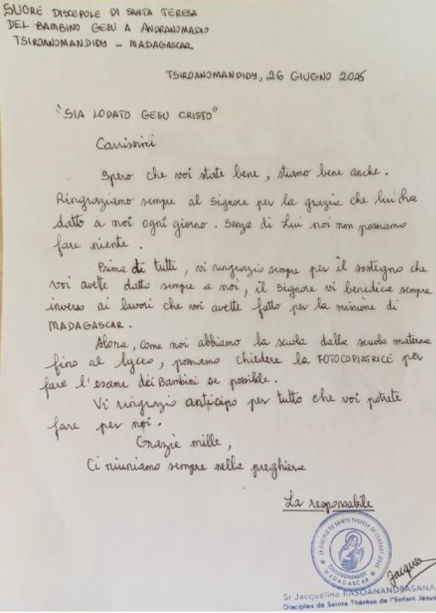 SUORE DISCEPOLE DI SANTA TERESA
DEL BAMBINO GESÙ A ANDRANOMADIO
TSIROANOMANDIDY – MADAGASCAR
TSIROANOMANDIDY, 26 GIUGNO 2025
"SIA LODATO GESU CRISTO"
Carissimi
Spero che voi state bene, stiamo bene anche.
Ringraziamo sempre al Signore per la grazia che lui ha
datto a noi ogni giorno. Senza di Lui noi non possiamo
fare niente.
Prima di tutti, vi ringrazio sempre per il sostegno che
voi avette datto sempre a noi, il Signore vi benedica sempre
inverso ai lavori che voi avette fatto per la missione di
MADAGASCAR.
Alora, come noi abbiamo la scuola dalla scuola materna
fino al lyceo, possiamo chiedere la FOTOCOPIATRICE per
fare l'esame dei Bambini se possibile.
Vi ringrazio anticipo per tutto che voi potrete
fare per noi.
Grazie mille,
Ci riuniamo sempre nella preghiera
La responsabile
DE SAINTE THÉRÈSE DE L'ENFANT JÉSUS
TSIROANOMANDIDY
MADAGASCAR
Jacqueline
Sr Jacqueline RASOANANDRASANA
Disciples de Sainte Thérèse de l'Enfant Jésus